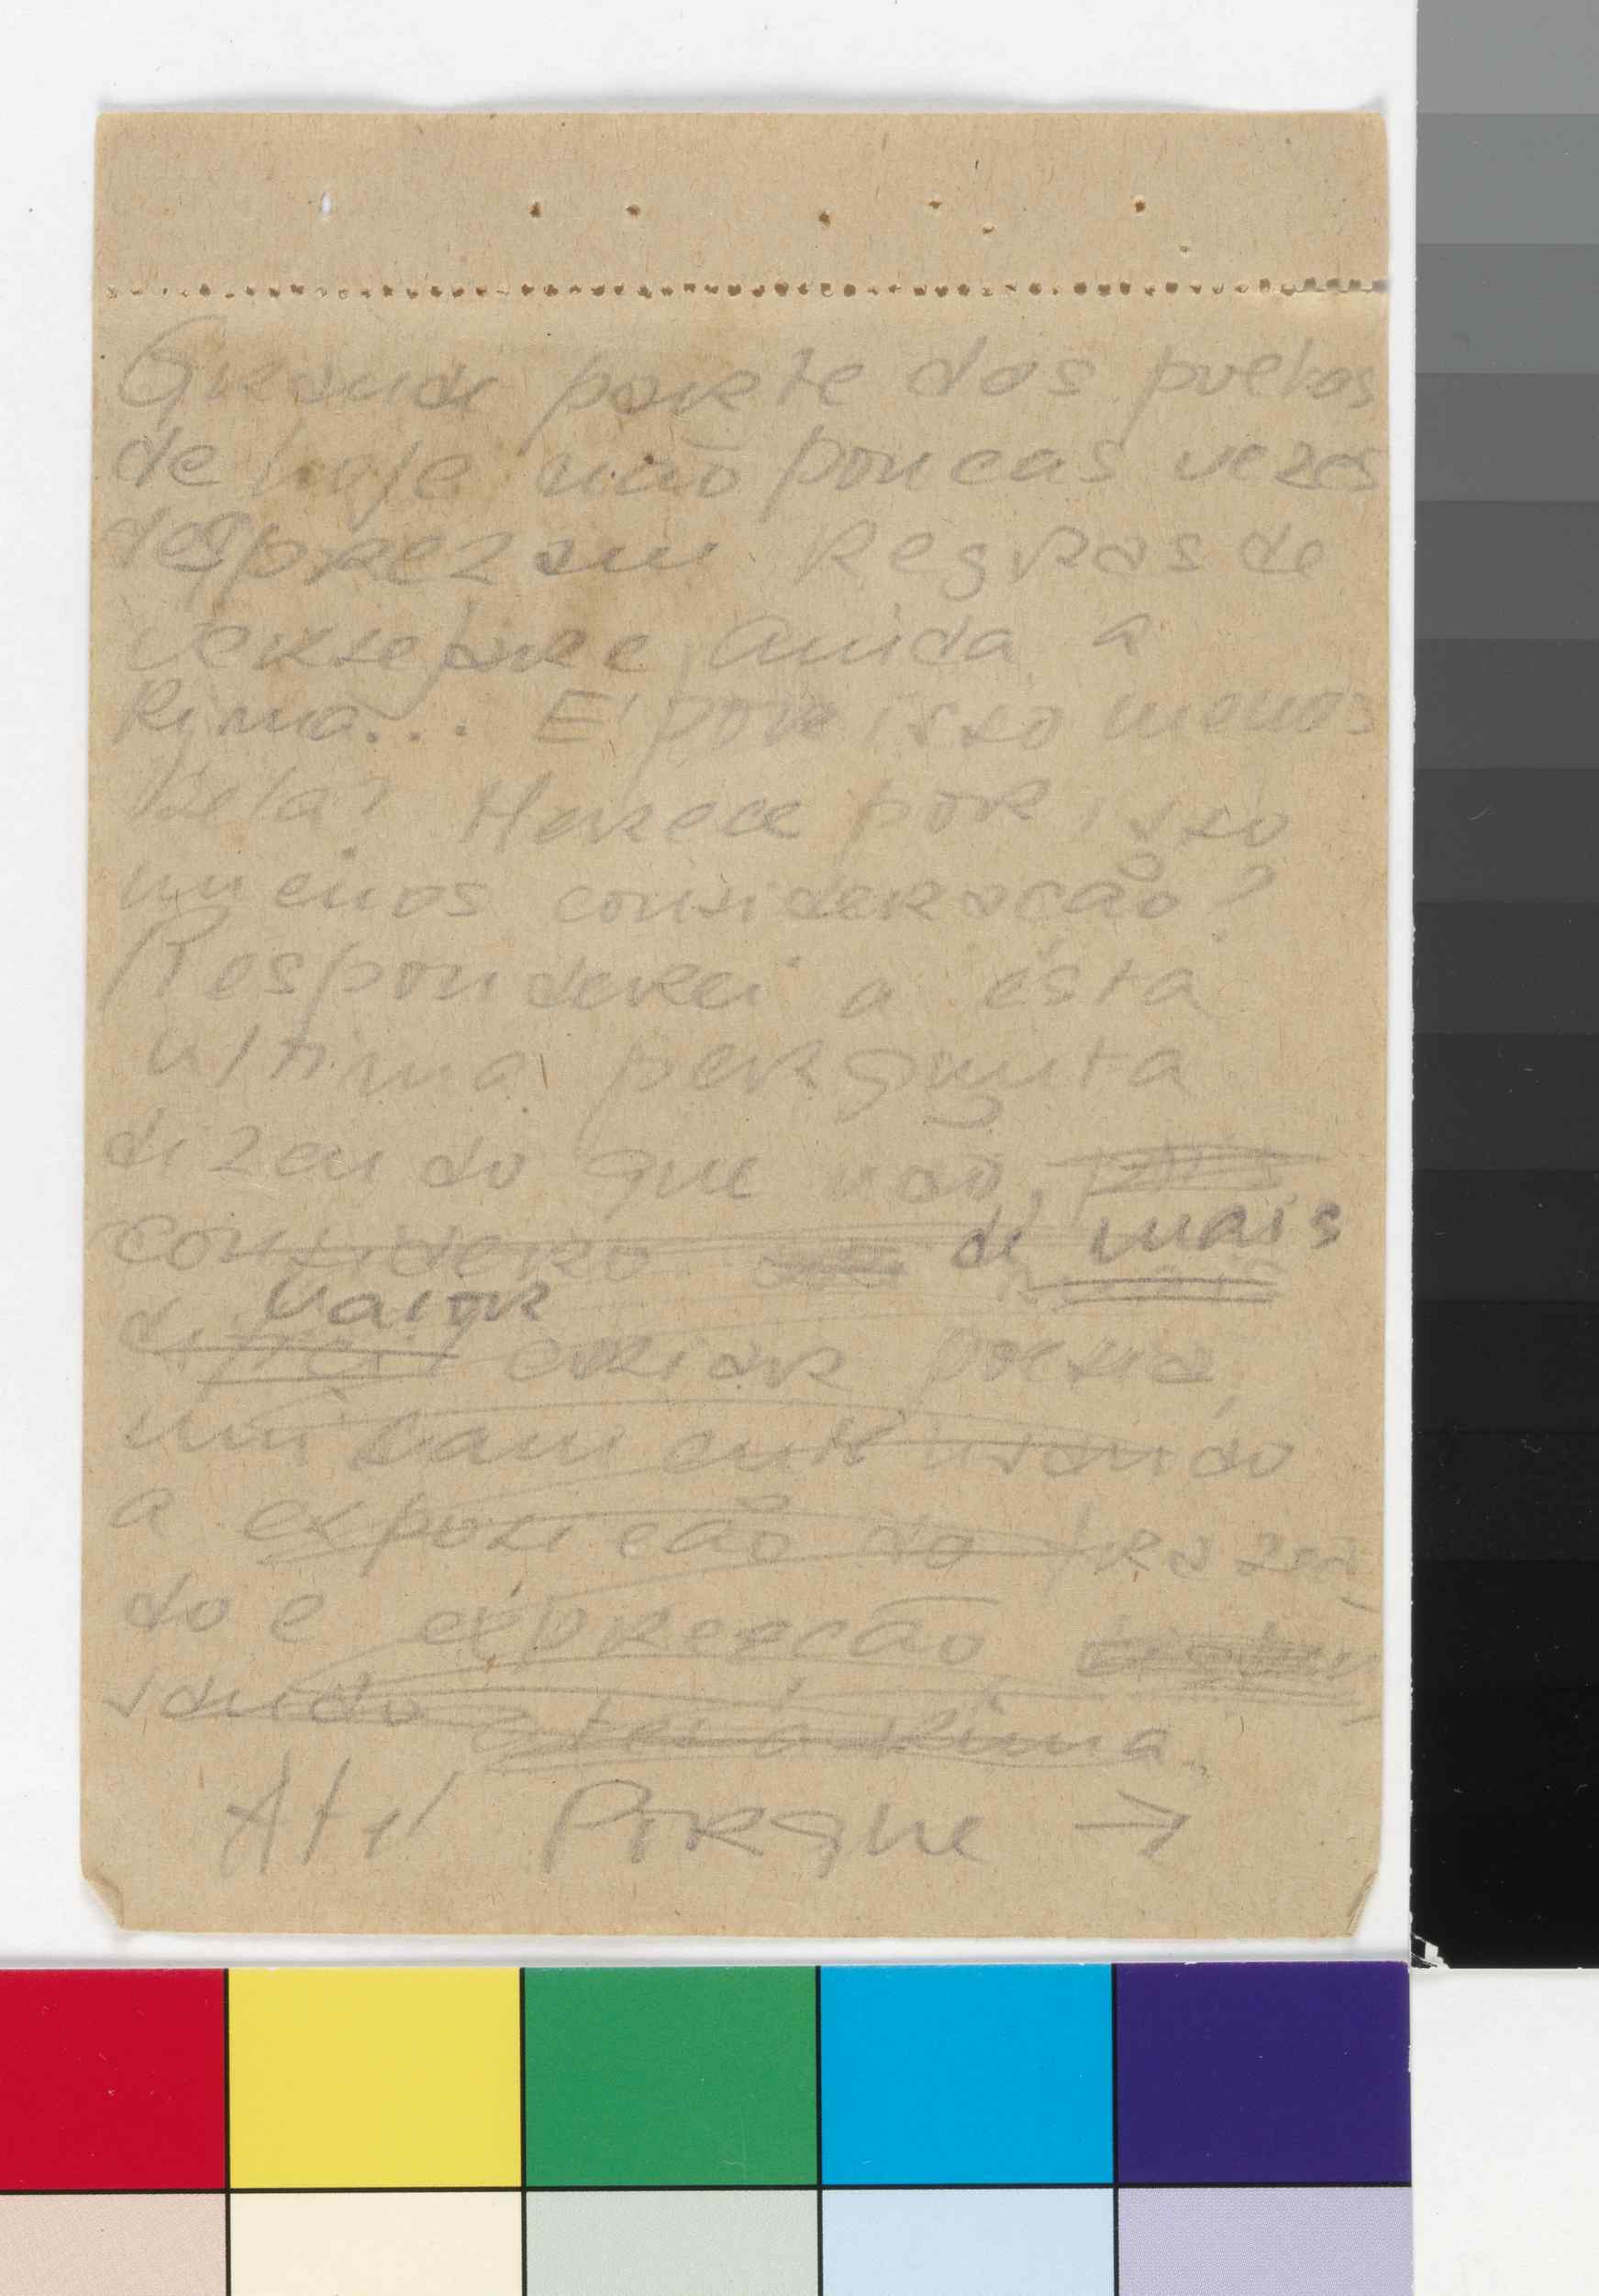 Grande parte dos poetas
de hoje não poucas vezes
desprezam regras de
e ainda a
Rima... E' por isso menos
bela? Merece por isso
menos consideracão?
Responderei a ésta
ultima pergunta
dizendo que não, pois
considero de mais
valor
dificil criar poesia,
unicamente usando
a exposicão do fraseá-
do e exprescão,
sando até a Rima.
Até Porque →